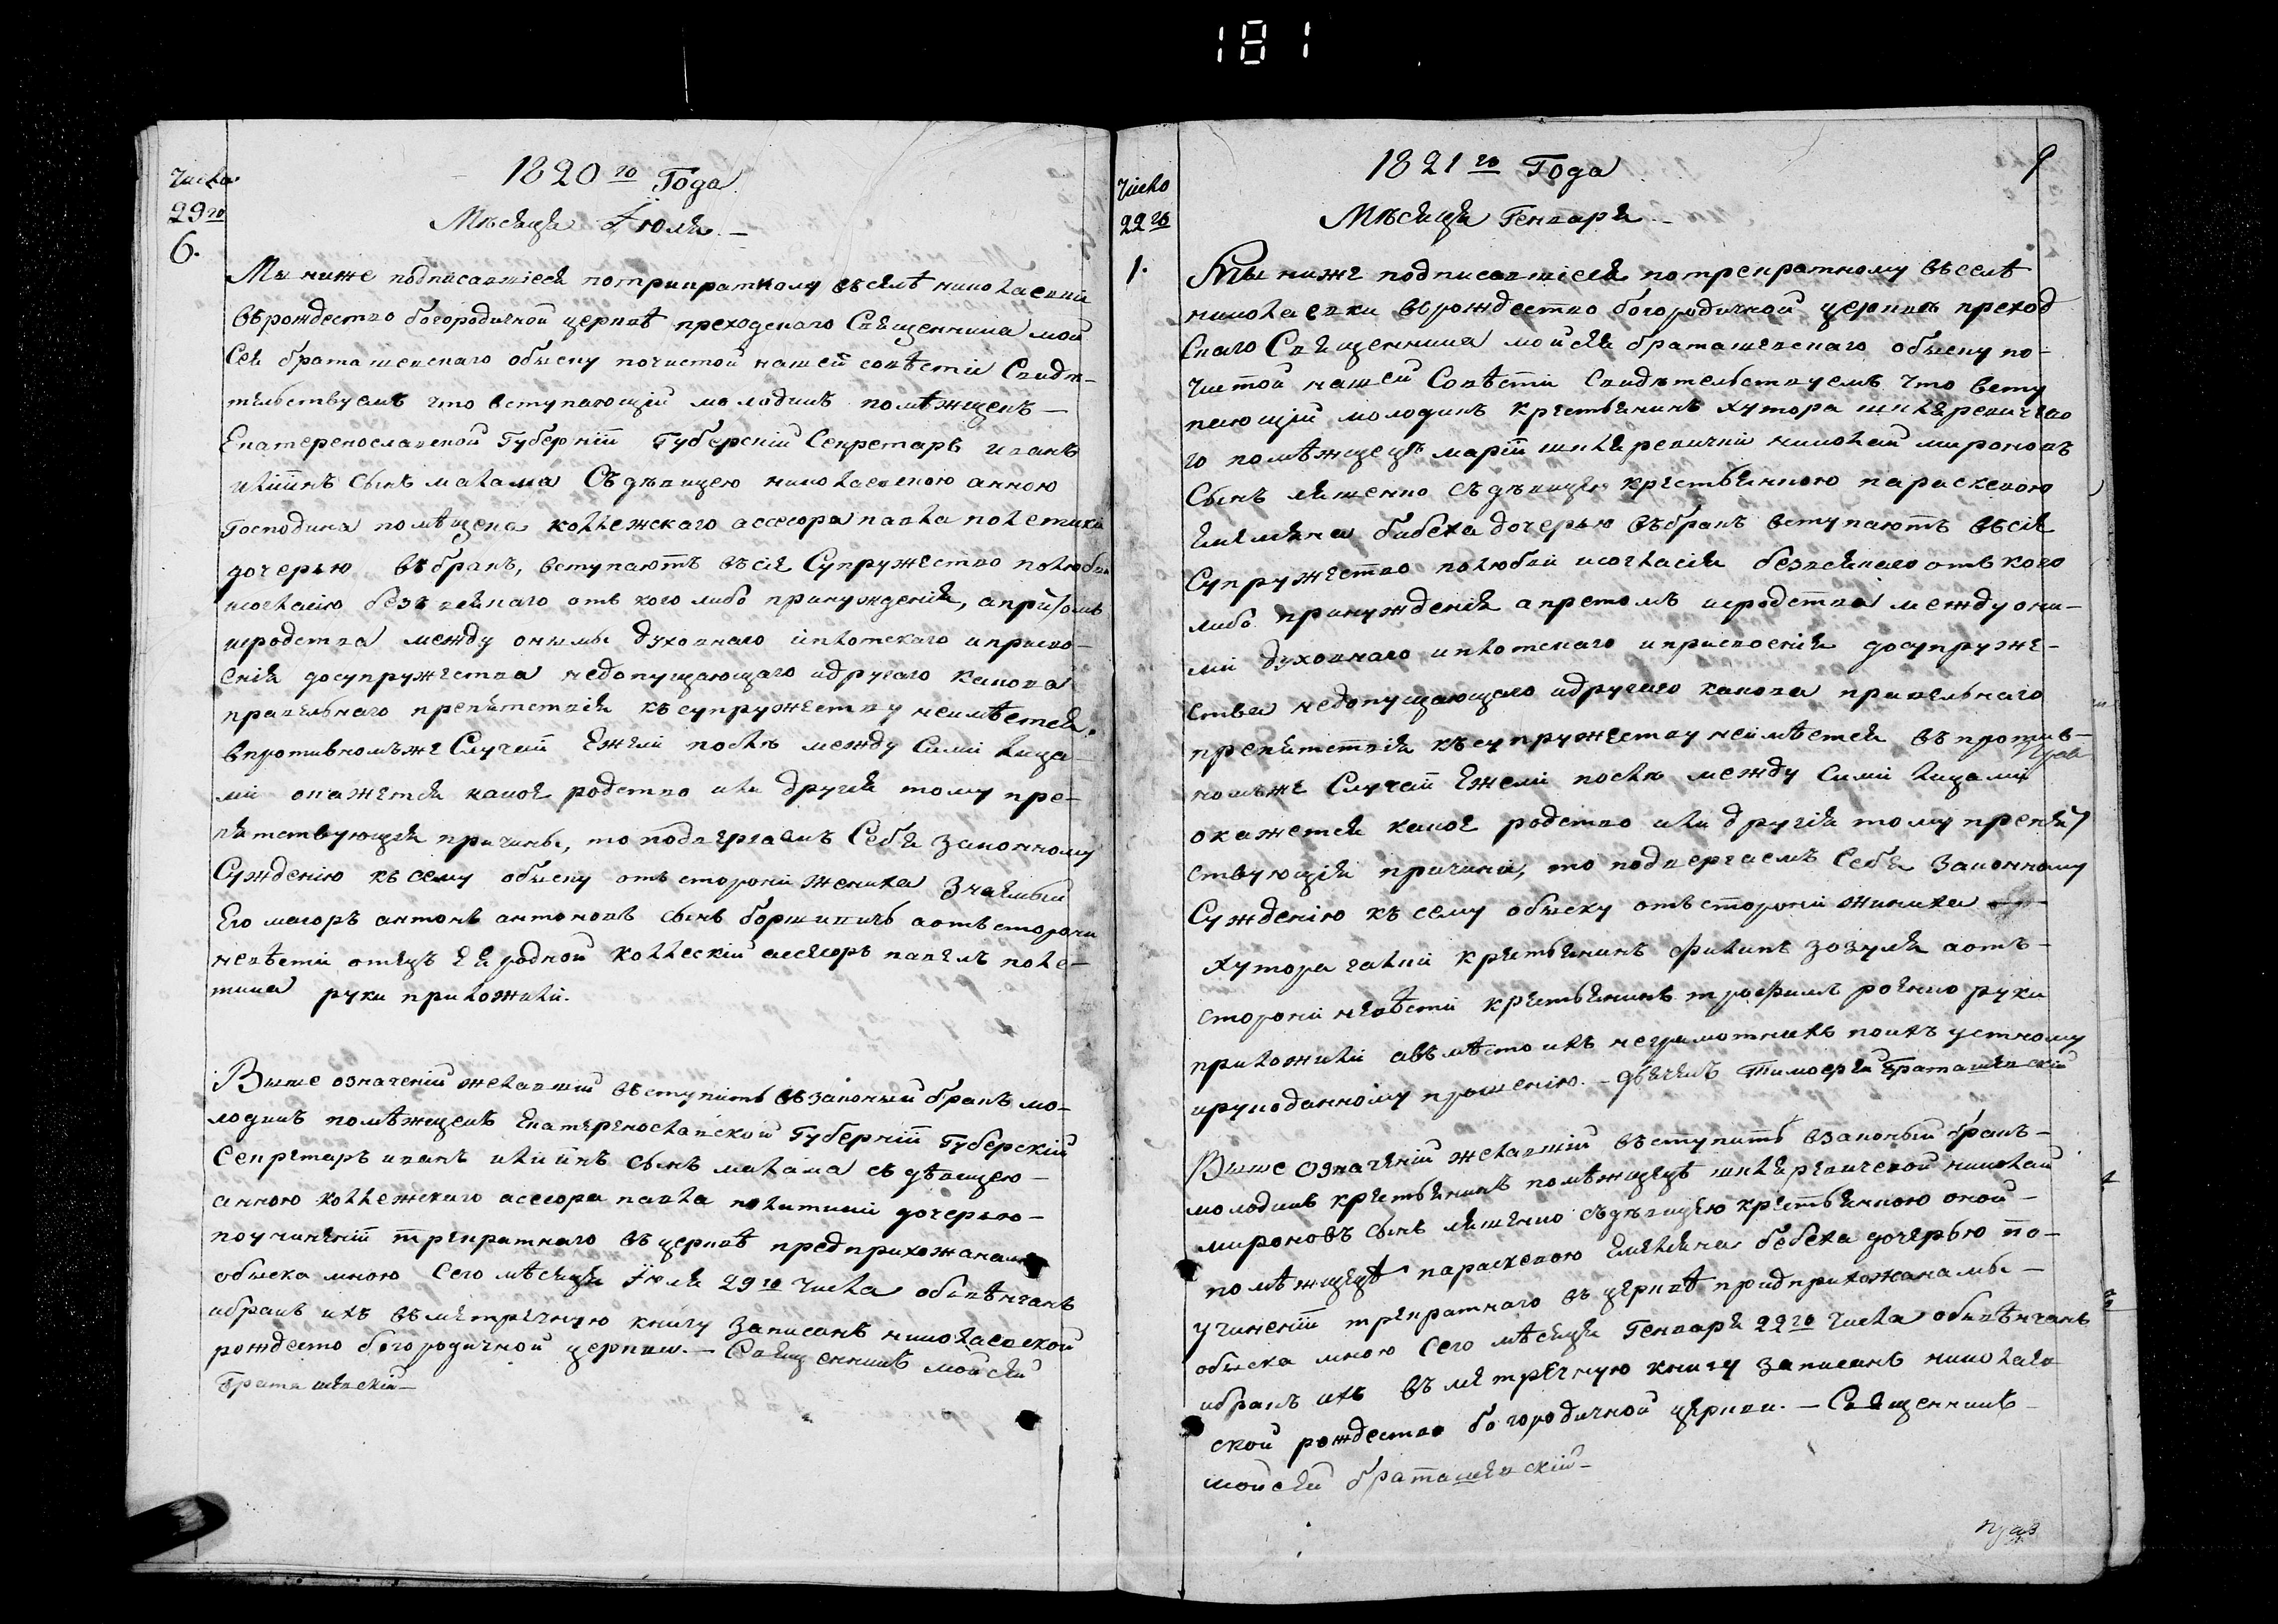 181
Числа
29го
6.
1820го Года
Мѣсяця Июля.
Мы ниже подписавшиеся потрикратному въселѣ николаевки
върождество богородичной церквѣ преходскаго Священника мой
Сея браташевскаго обыску почистой нашей совѣсти Свидѣ-
тельствуемъ что вступающий молодикъ помѣжщикъ
Екатеренославской Губерніи Губерский Секретаръ иванъ
илиинъ Сынъ малама Съдѣвицею николаевскою анною
Господина помѣщека коллежскаго ассесора павла полетики
дочерью въбракъ, вступаютъ въсие Супружество полюбви
исогласию безъ всякаго отъ кого либо принуждения, апритомъ
иродства между онымы духовнаго иплотскаго иприсво-
ения досупружества недопущающаго идругаго какова
правельнаго препятствия къ супружеству неимѣется.
впротивномъже Случаи Ежели послѣ между Сими лица-
ми окажется какое родство или другия тому пре-
пятствующия причины, то подвергаемъ Себя законному
Суждению къ сему обыску отъ сторони жениха Знаемый
Его маиоръ антонъ антоновъ сынъ аотъсторони
невѣсти отецъ Ея родной коллеский асесоръ павелъ поле-
тика руки приложили.
Выше означений желавший въступить възаконый бракъ мо-
лодикъ помѣжщикъ Екатеренославской Губерніи Губерский
Секретаръ иванъ илиинъ сынъ малама съ дѣвицею
анною коллежскаго асесора павла политики дочерью
поучинении трекратнаго въцерквѣ предприхожанамы
обыска мною Сего мѣсяця Июля 29го числа обвѣнчанъ
ибракъ ихъ въметречную книгу Записанъ николаевской
рождество богородичной церкви. — Священникъ мойсей
Браташевский
Число
22го
1.
1821го Года
9
Мѣсяця Генваря
Мы ниже подписавшиеся потрекратному въселѣ
николаевки върождество богородичной церквѣ преход
Скаго Священника мойсея браташевскаго обыску по-
чистой нашей Совѣсти Свидѣтельствуемъ что всту
пающий молодикъ крестьянинъ хутора шкляревичево
го помѣжщецѣ марии шкляревички николай мироновъ
Сынъ ляшенко съдѣвицею крестьянкою параскевою
Емеляна бибека дочерью въбракъ вступаютъ въсие
Супружество полюбви исогласия безвсякаго отъ кого
либо принуждения апретомъ иродства между они-
ми духовнаго иплотскаго иприсвоения досупруже-
ства недопущающаго идругаго какова правельнаго
препятствия къ супружеству неимѣется въпротив-
номъже Случаи Ежели послѣ между Сими лицами
окажется какое родство или другия тому препят
ствующия причини, то подвергаемъ Себя законному
Суждению къ сему обыску отъстороны жениха
хутора крестьянинъ филипъ зозуля аотъ-
стороны невѣсти крестьянинъ трофимъ руки
приложили авъмѣсто ихъ неграмотнихъ поихъ устному
ирукоданному прошению. — дьячекъ Тимофей Браташевский
Выше означений желавший въступить взаконый бракъ
молодикъ крестьянинъ помѣжщецѣ шкляревичевой николай
мироновъ сынъ ляшенко съдѣвицею крестьянкою оной
помѣжщецѣ параскевою Емеляна бебека дочерью по-
учинении трекратнаго въцерквѣ предприхожанамы
обыска мною Сего мѣсяця Генваря 22го числа обвѣнчанъ
ибракъ ихъ въ метречную книгу записанъ николаев
ской рождество богородичной церкви. — Священникъ
мойсей браташевский